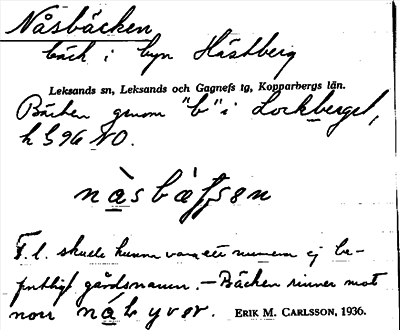 Nåsbäcken
bäck i byn Hästberg
Leksands sn, Leksands och Gagnefs tg, Kopparbergs län.
Bäcken genom "b" i Lockberget,
h G 96 NO.
F.l. skulle kunna vara ett numera ej be-
fintligt gårdsnamn. — Bäcken rinner mot
norr
ERIK M. CARLSSON, 1936.